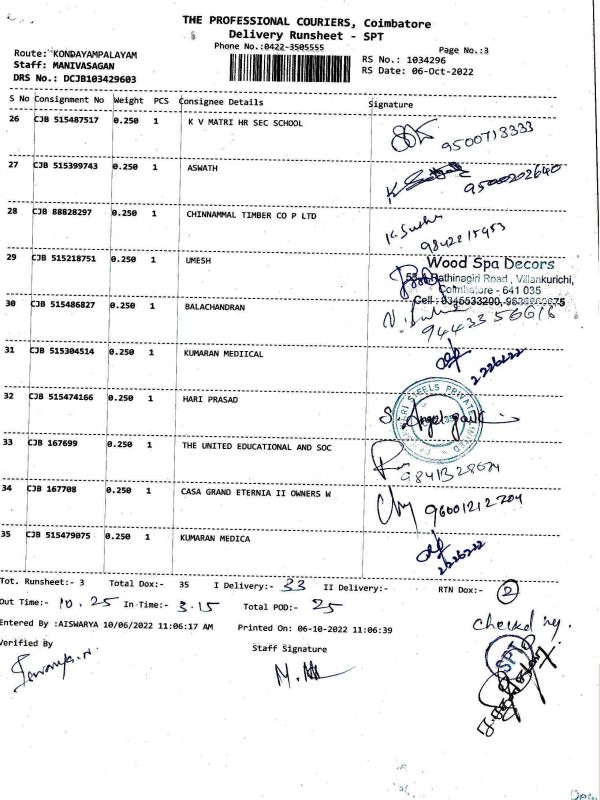 THE PROFESSIONAL COURIERS, Coimbatore
Delivery Runsheet - SPT
Phone No.:0422-3505555
Page No.:3
Route: KONDAYAMPALAYAM
Staff: MANIVASAGAN
DRS No.: DCJB103429603
RS No.: 1034296
RS Date: 06-Oct-2022
S No Consignment No Weight PCS Consignee Details Signature
26 CJB 515487517 0.250 1 K V MATRI HR SEC SCHOOL 9500713333
27 CJB 515399743 0.250 1 ASWATH 9500202640
28 CJB 88828297 0.250 1 CHINNAMMAL TIMBER CO P LTD
29 CJB 515218751 0.250 1 UMESH
Wood Spa Decors
Rathinagiri Road, Villankurichi,
Coimbatore - 641 035
Cell :
30 CJB 515486827 0.250 1 BALACHANDRAN 9443356616
31 CJB 515304514 0.250 1 KUMARAN MEDIICAL 2226222
32 CJB 515474166 0.250 1 HARI PRASAD
33 CJB 167699 0.250 1 THE UNITED EDUCATIONAL AND SOC 9841328674
34 CJB 167708 0.250 1 CASA GRAND ETERNIA II OWNERS W 96001212704
35 CJB 515479075 0.250 1 KUMARAN MEDICA 2226222
Tot. Runsheet:- 3 Total Dox:- 35 I Delivery:- 33 II Delivery:- RTN Dox:- 2
Out Time:- 10.25 In-Time:- 3.15 Total POD:- 25
Entered By :AISWARYA 10/06/2022 11:06:17 AM Printed On: 06-10-2022 11:06:39
Verified By Staff Signature
SPT